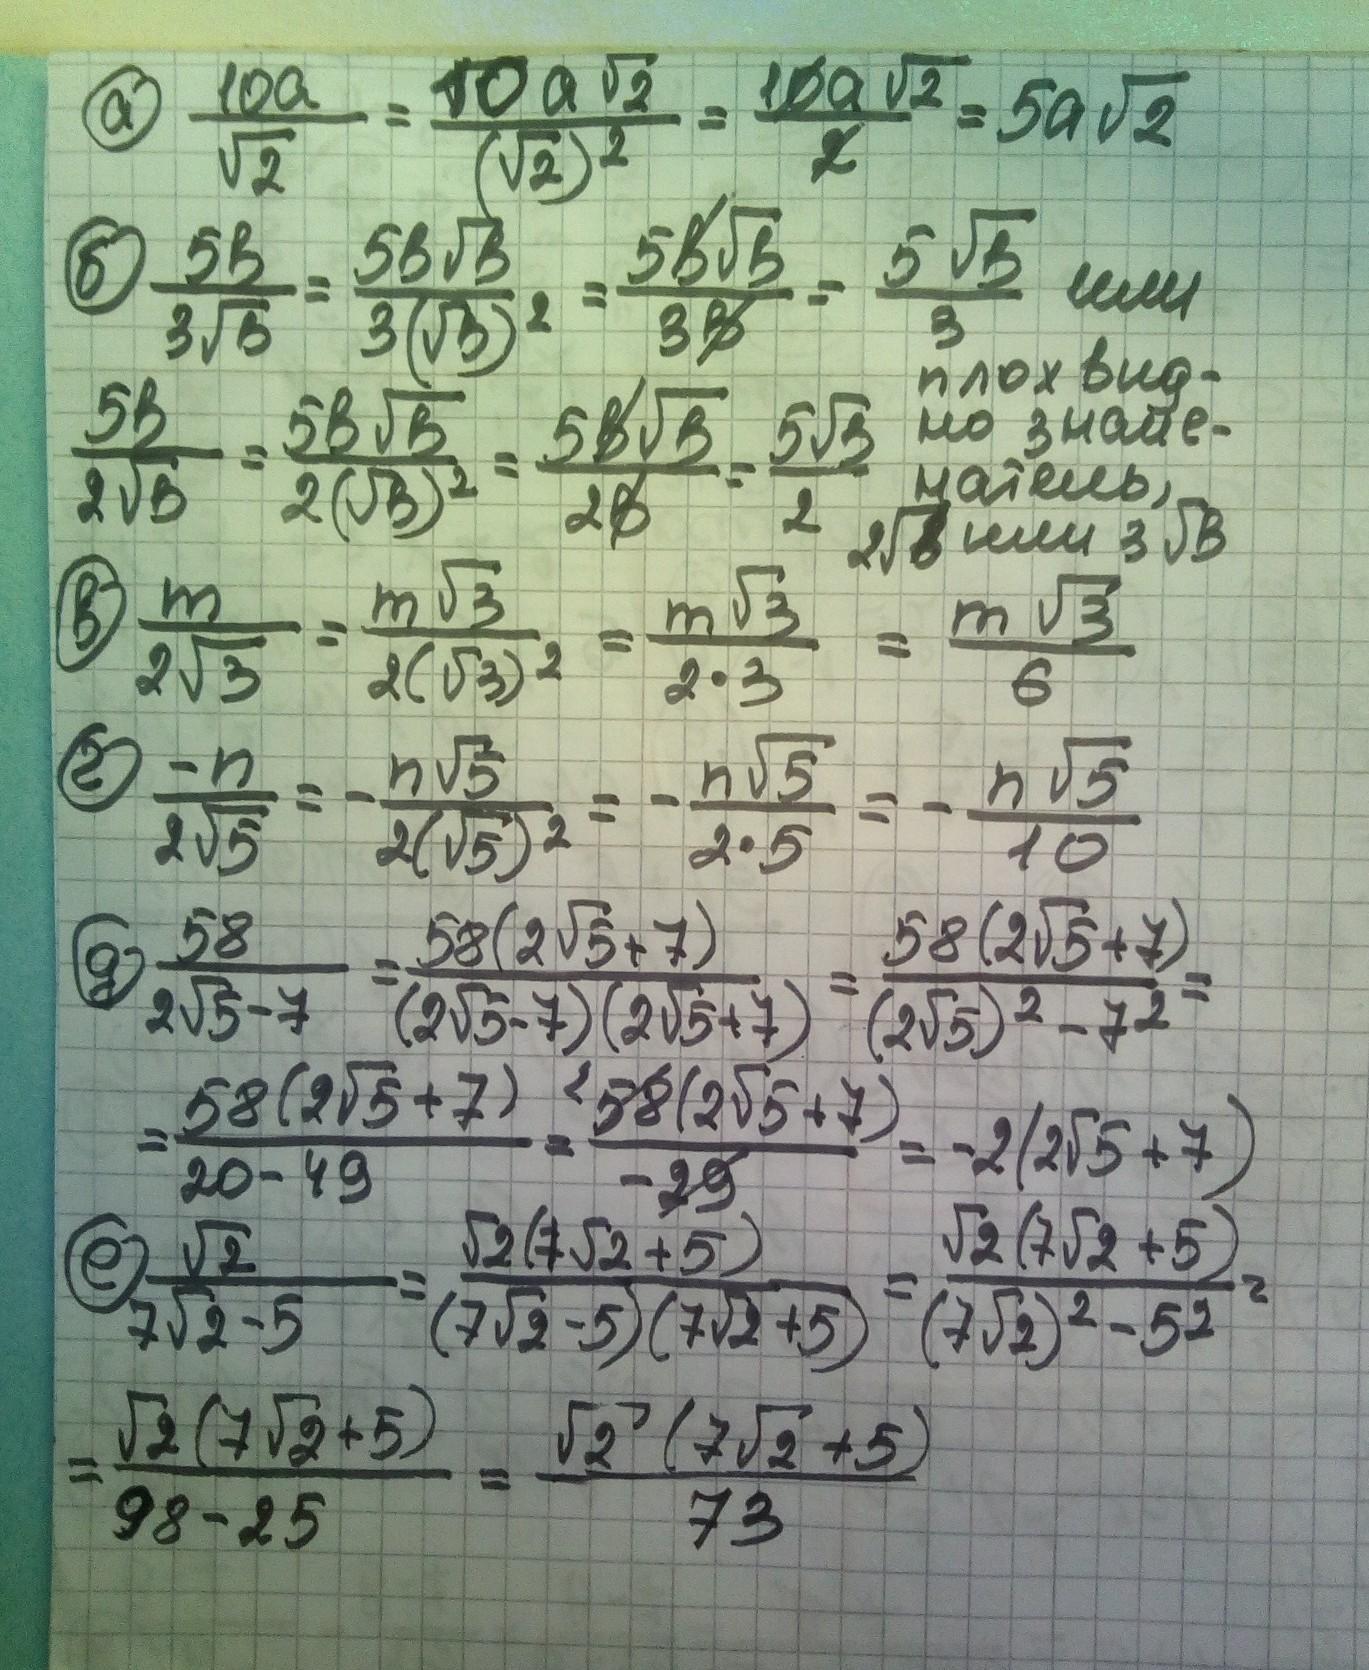 а) 10a/√2 = 10a√2/(√2)² = 10a√2/2 = 5a√2
б) 5в/3√в = 5в√в/3(√в)² = 5в√в/3в = 5√в/3 или
5в/2√в = 5в√в/2(√в)² = 5в√в/2в = 5√в/2
плох вид-
но знаме-
натель,
2√в или 3√в
в) m/2√3 = m√3/2(√3)² = m√3/2·3 = m√3/6
г) -n/2√5 = -n√5/2(√5)² = -n√5/2·5 = -n√5/10
д) 58/2√5-7 = 58(2√5+7)/(2√5-7)(2√5+7) = 58(2√5+7)/(2√5)²-7² =
= 58(2√5+7)/20-49 = ²58(2√5+7)/-29 = -2(2√5+7)
е) √2/7√2-5 = √2(7√2+5)/(7√2-5)(7√2+5) = √2(7√2+5)/(7√2)²-5² =
= √2(7√2+5)/98-25 = √2(7√2+5)/73